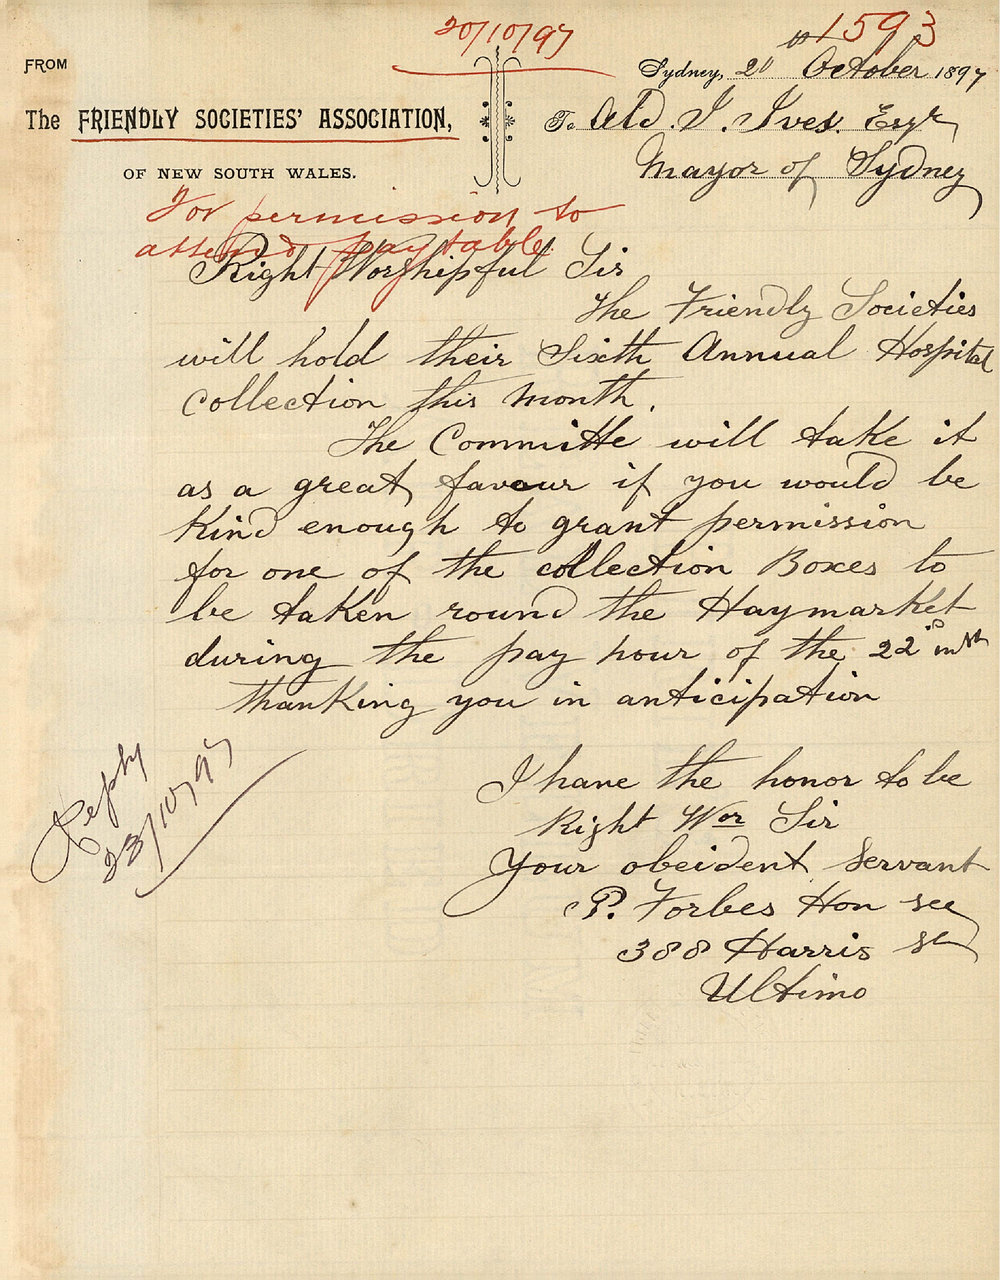 20/10/97
1593
FROM
Sydney, 20 October 1897
The FRIENDLY SOCIETIES' ASSOCIATION,
To Ald. I. Ives. Esqr
OF NEW SOUTH WALES.
Mayor of Sydney
For permission to
attend pay table
Right Worshipful Sir
The Friendly Societies
will hold their Sixth Annual Hospital
Collection this month.
The Committe will take it
as a great favour if you would be
kind enough to grant permission
for one of the collection Boxes to
be taken round the Haymarket
during the pay hour of the 22 inst
thanking you in anticipation
Reply
23/10/97
I have the honor to be
Right Wor Sir
Your obeident Servant
P. Forbes Hon sec
388 Harris St
Ultimo